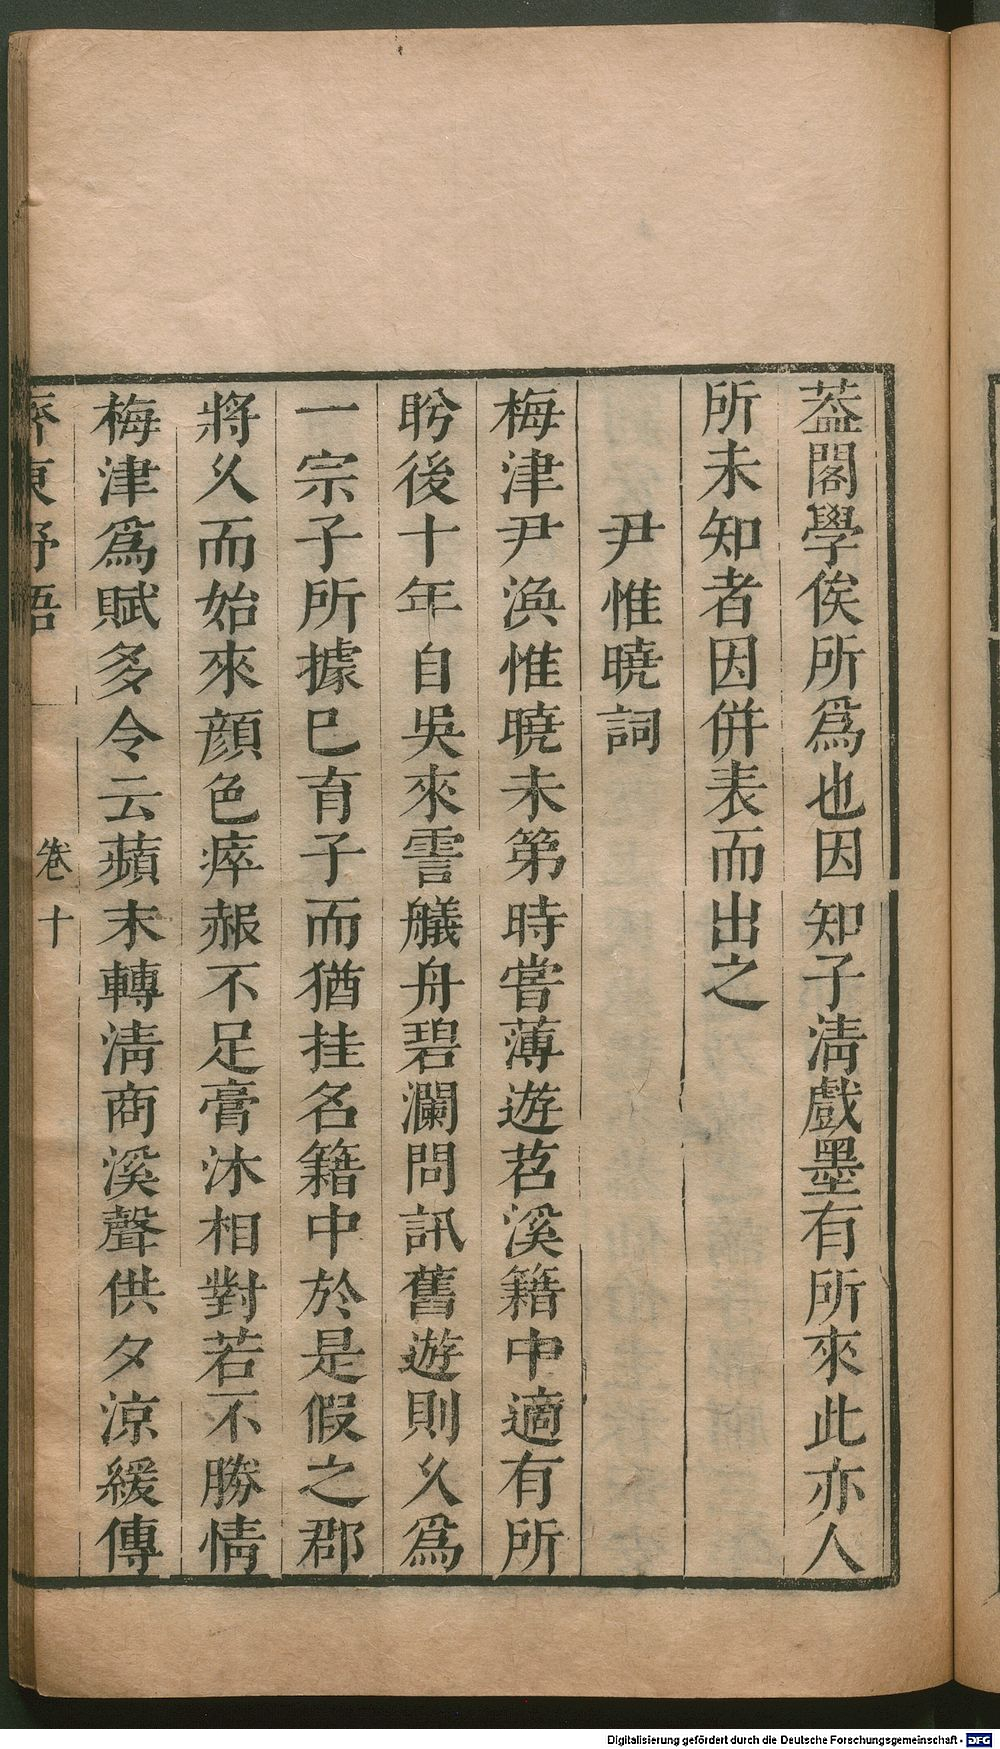 葢閣學俟所爲也因知子清戲墨有所來此亦人
所未知者因併表而出之
尹惟曉詞
梅津尹渙惟曉未第時嘗薄遊苕溪籍中適有所
盻後十年自吳來霅艤舟碧瀾問訊舊遊則乆爲
一宗子所據巳育子而猶挂名籍中於是假之郡
將乆而始來顔色瘁赧不足膏沐相對若不勝情
梅津爲賦多令云蘋末轉清商溪聲供夕涼緩傳
齊東野語 卷十
Digitalisierung gefördert durch die Deutsche Forschungsgemeinschaft - DFG